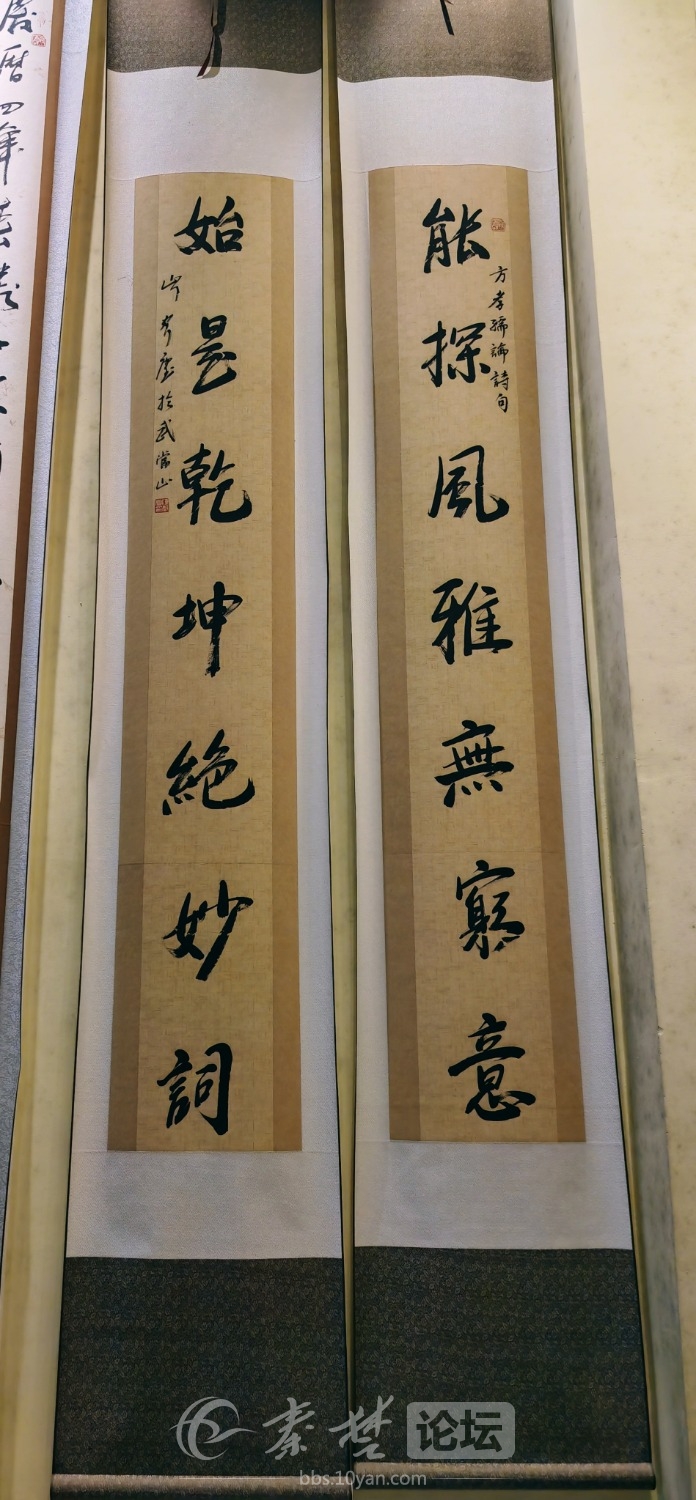 能探風雅無窮意
方孝孺論詩句
始是乾坤絕妙詞
於武當山
秦楚论坛
bbs.10yan.com